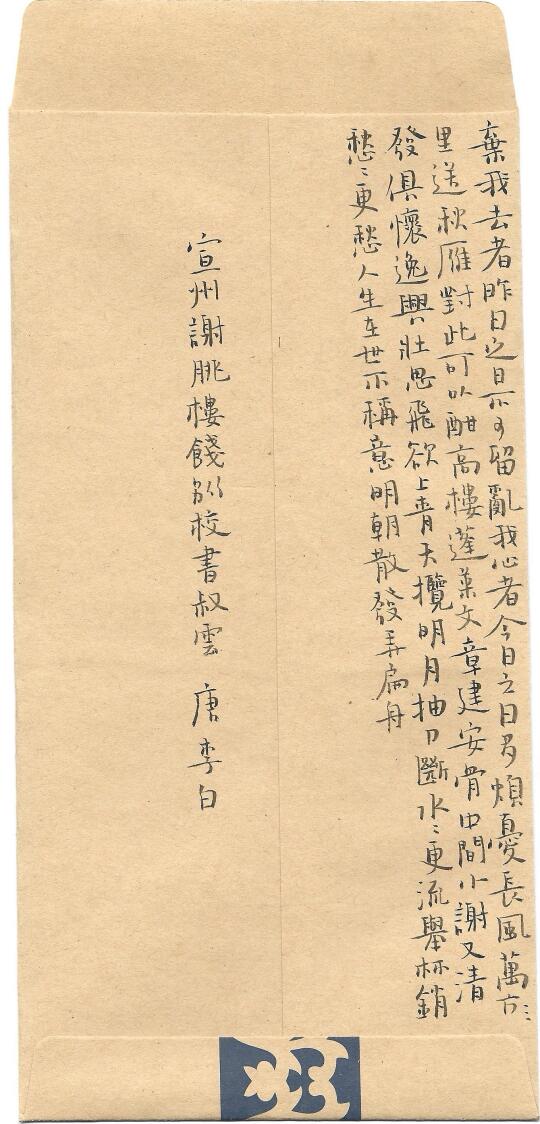 棄我去者昨日之日不可留亂我心者今日之日多煩憂長風萬
里送秋雁對此可以酣高樓蓬萊文章建安骨中間小謝又清
發俱懷逸興壯思飛欲上青天攬明月抽刀斷水〻更流舉杯銷
愁〻更愁人生在世不稱意明朝散發弄扁舟
宣州謝朓樓餞別校書叔雲 唐李白